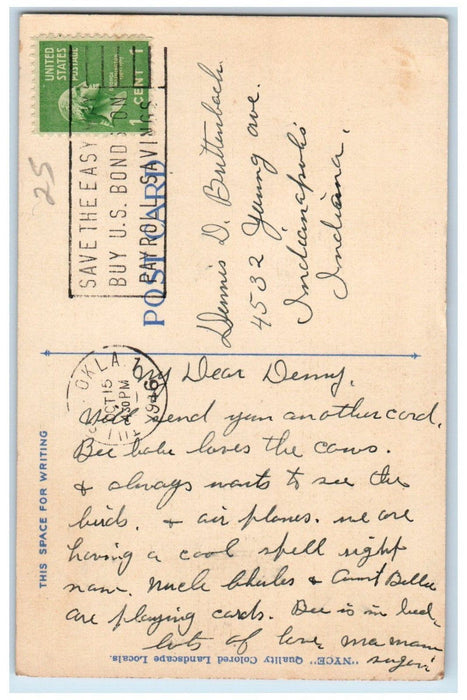 25
UNITED
STATES
POSTAGE
1 CENT 1
SAVE THE EASY
BUY U.S. BONDS ON
PAYROLL SAVINGS
POST CARD
Dennis D. Buttenbach
4532 Young ave.
Indianapolis
Indiana.
OKLA
OCT 15
4 30 PM
1946
THIS SPACE FOR WRITING
My Dear Denny.
Will send you another card.
Bee babe loves the cows.
& always wants to see the
birds. & air planes. we are
having a cool spell right
now. Uncle Charles & Aunt Bella
are playing cards. Bee is in bed.
lots of love, mamam
sugar
"NYCE" Quality Colored Landscape Locals.